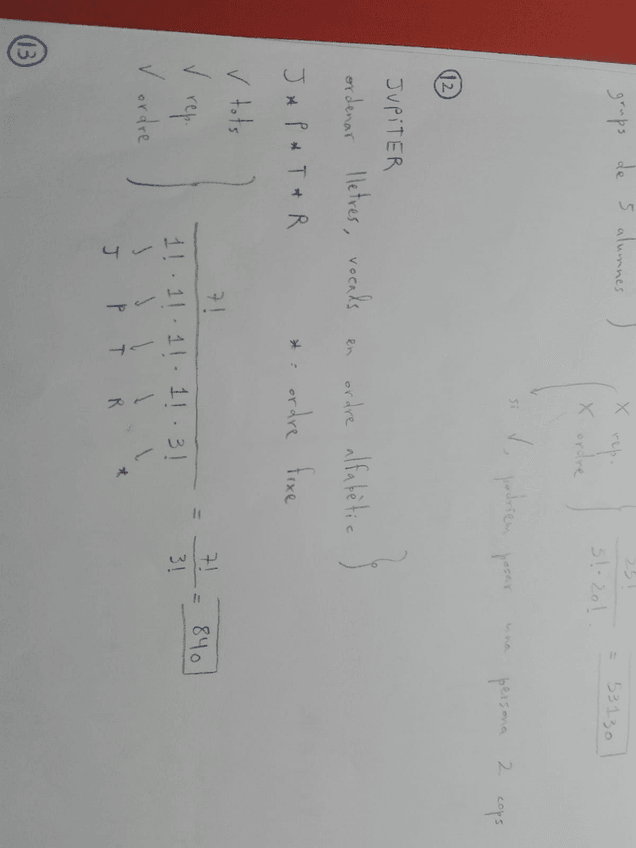 grups de 5 alumnes } X rep. X ordre } 25! / 5! · 20! = 53130
si √, podríem posar una persona 2 cops
12
JUPiTER
ordenar lletres, vocals en ordre alfabètic }
J * P * T * R * = ordre fixe
√ tots
√ rep.
√ ordre
7! / 1! · 1! · 1! · 1! · 3! = 7! / 3! = 840
J P T R *
13